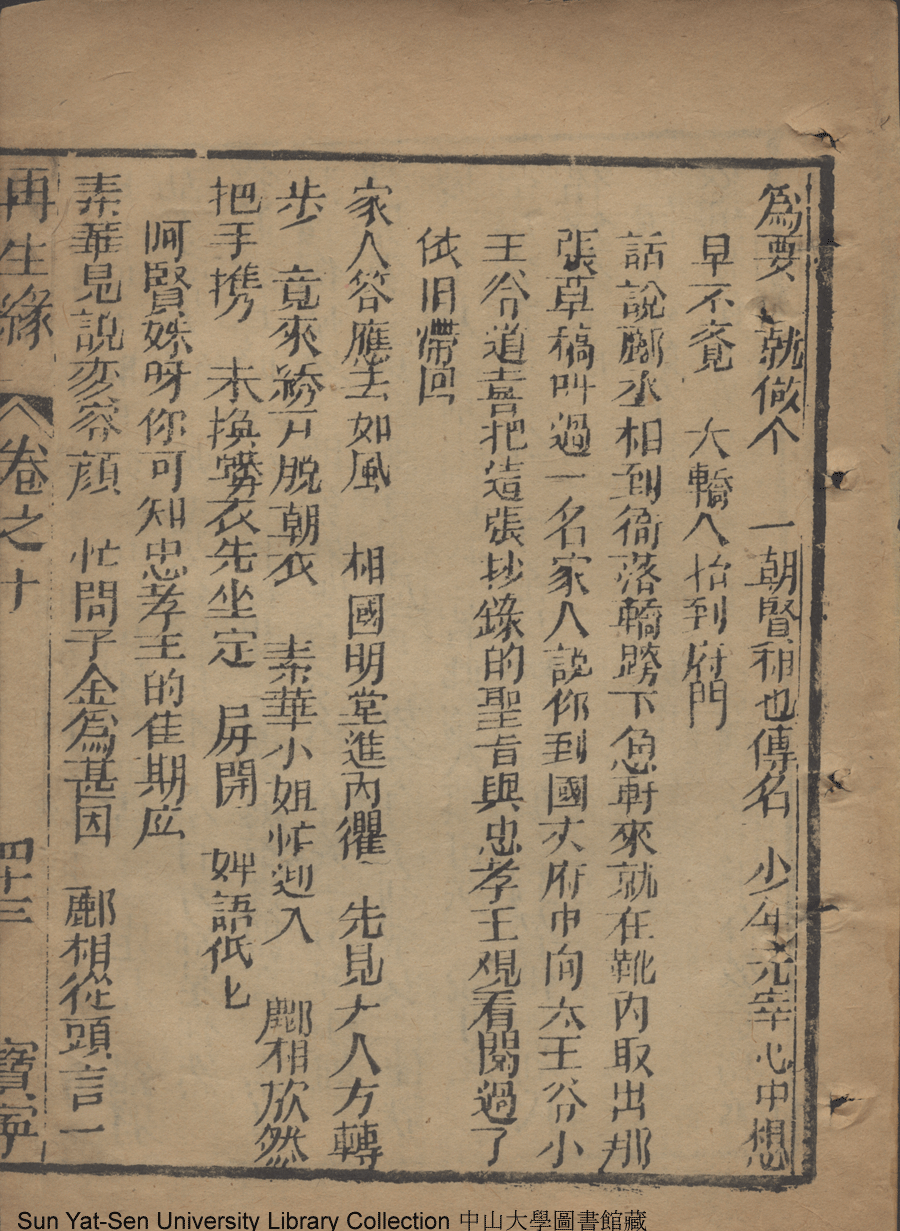 為要 就做个 一朝賢相也傳名 少年元宰心中想
早不覔 大轎人抬到府門
話說酈丞相到衙落轎跨下急軒來就在靴內取出那
張草稿叫過一名家人說你到國丈府中向太王爷小
王爷道喜把這張抄錄的聖旨與忠孝王观看閱過了
依旧滯回
家人答應去如風 相國明堂進內 先見大人方轉
步 竟來 脫朝衣 素華小姐忙迎入 酈相欣然
把手携 未換 衣先坐定 屏開 婢語低匕
呵賢妹呀你可知忠孝王的佳期应
素華見說变容顔 忙問千金為甚因 酈相從頭言一
再生緣 卷之十 四十三 寶寧
Sun Yat-Sen University Library Collection 中山大學圖書館藏